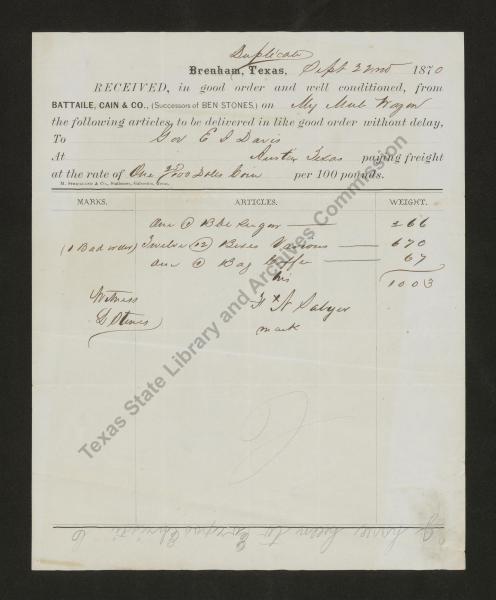 Duplicate
Brenham, Texas, Sept 22nd 1870
RECEIVED, in good order and well conditioned, from
BATTAILE, CAIN & CO., (Successors of BEN STONES,) on My Mule Wagon
the following articles, to be delivered in like good order without delay,
To Gov E J Davis
At Austin Texas paying freight
at the rate of One Coin per 100 pounds.
MARKS. ARTICLES. WEIGHT.
One (1) Bbl Sugar 266
(1 Bad order) Twelve (12) Boxes Various 670
One (1) Bag Coffee 67
1003
his
Witness F x A
mark
Texas State Library and Archives Commission